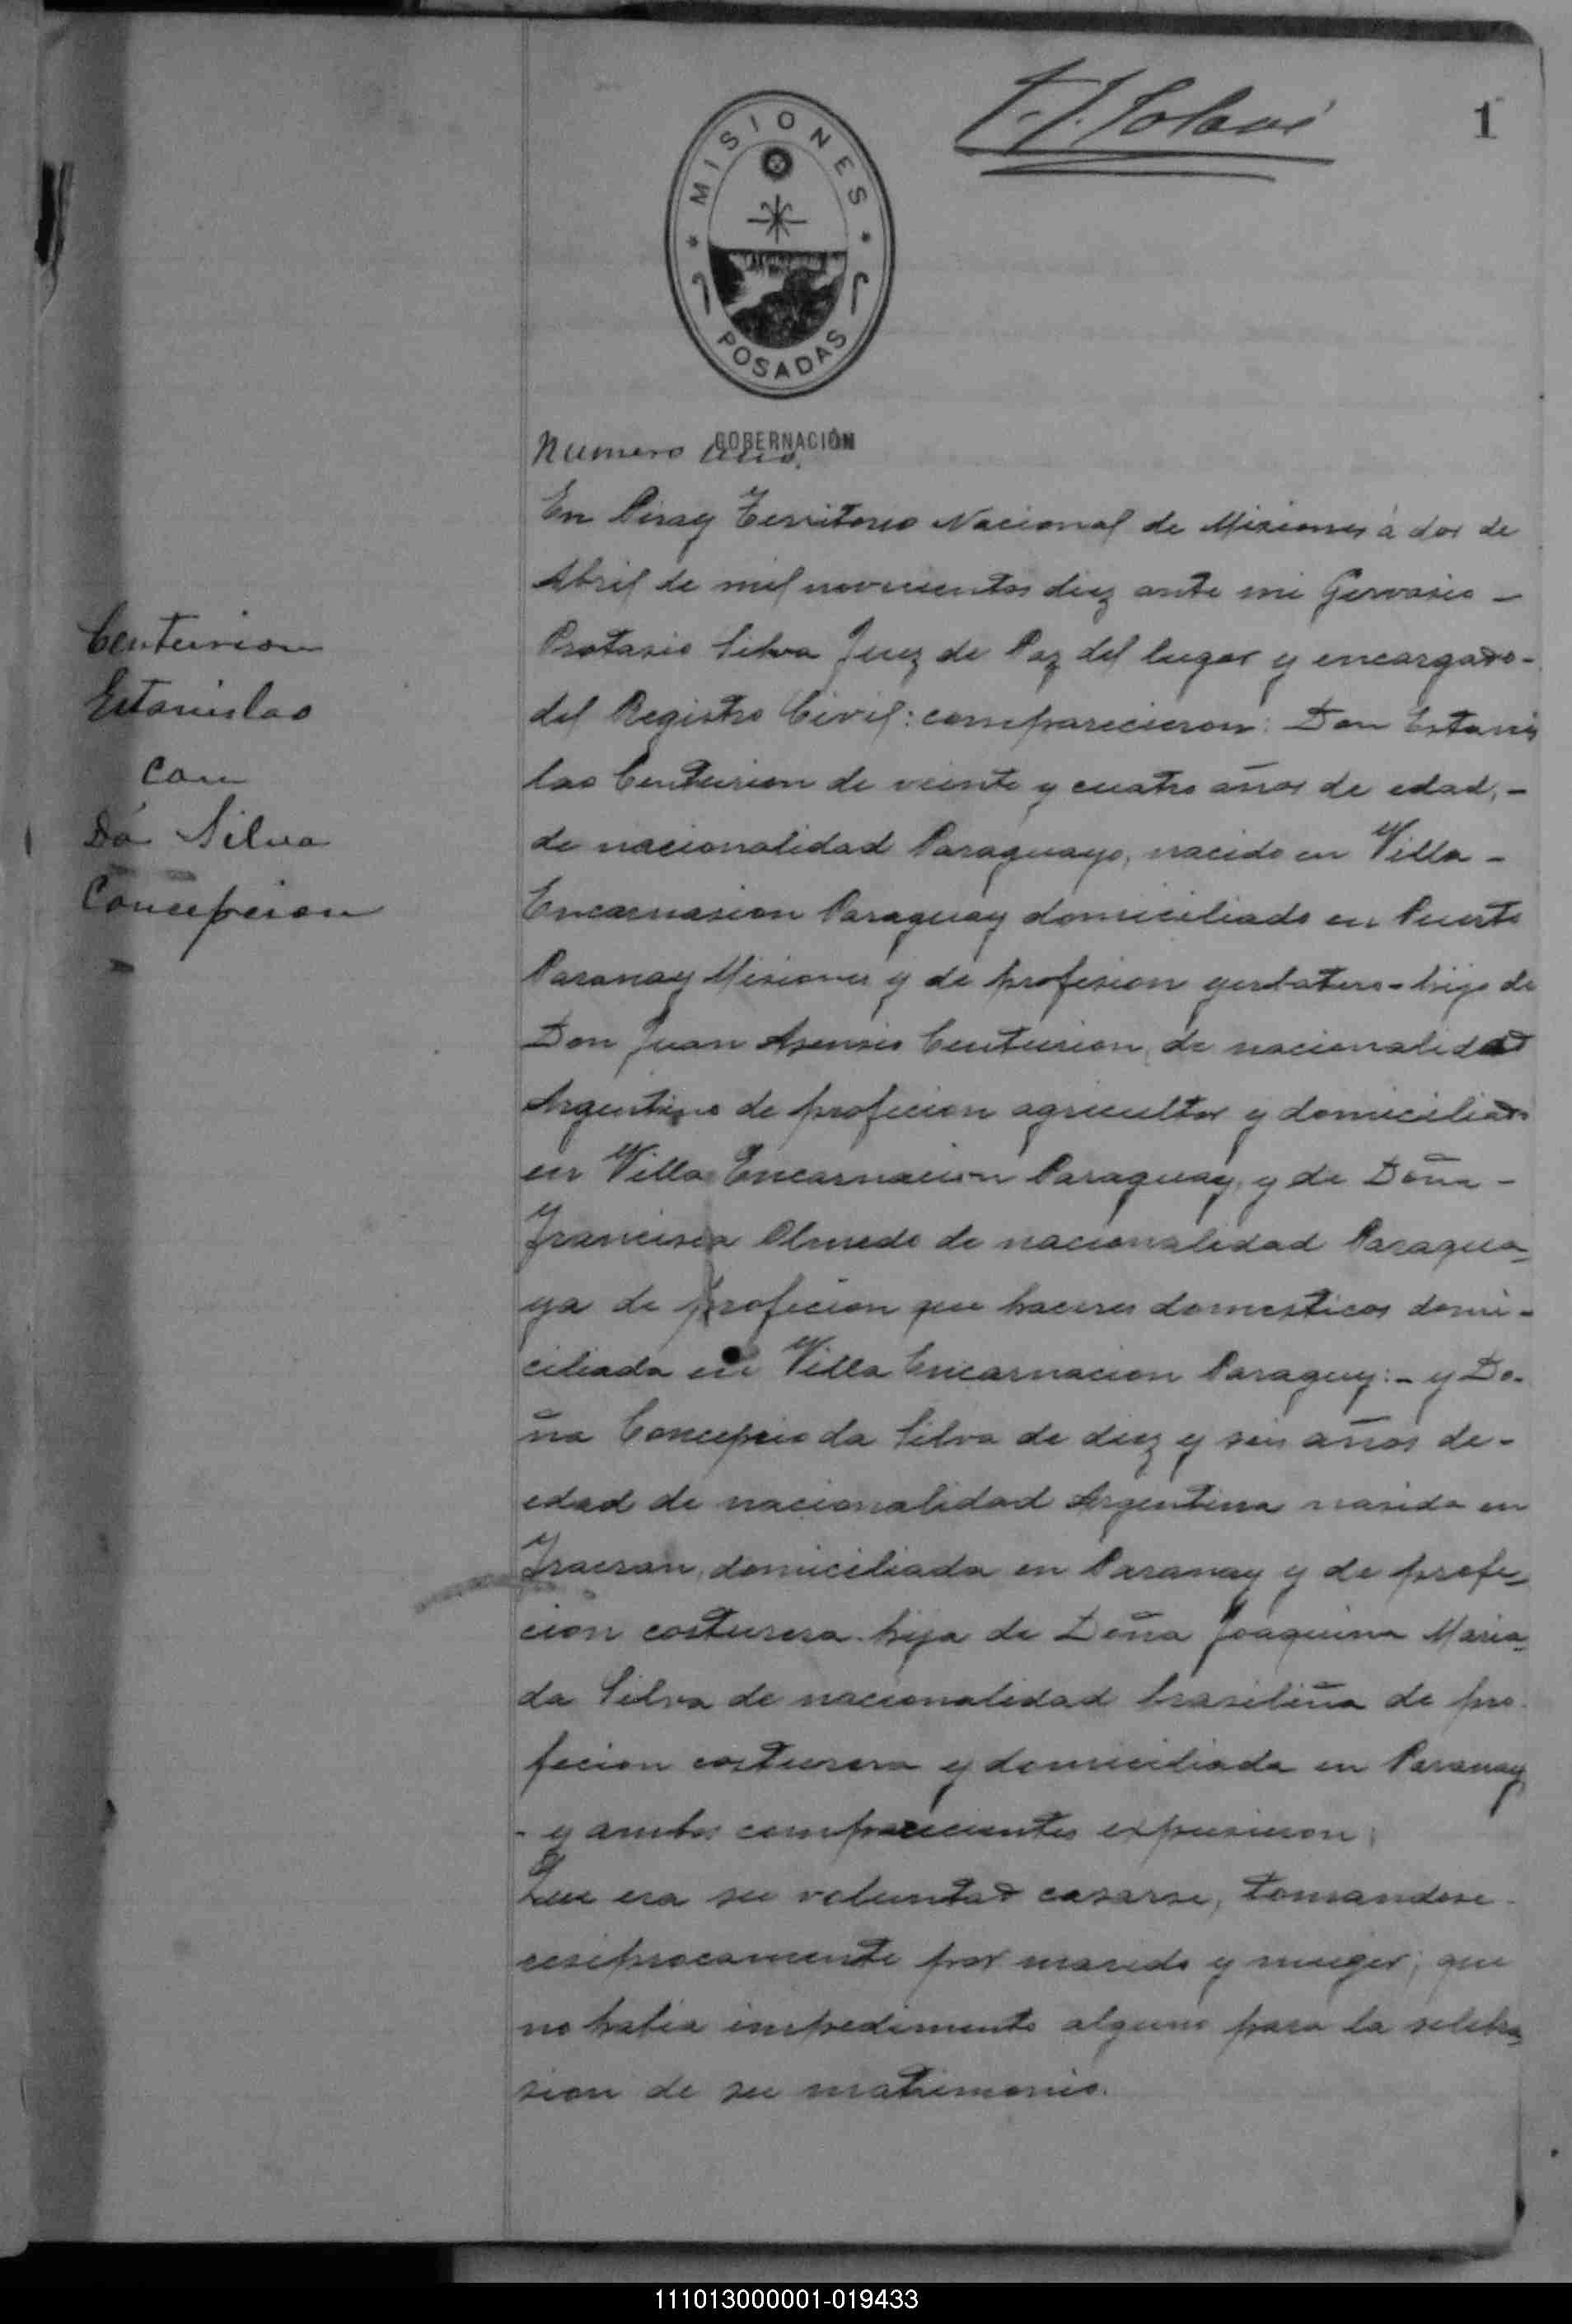 1
MISIONES
POSADAS
GOBERNACIÓN
Numero Uno.
Centurion
Estanislao
con
Da Silva
Concepcion
En Piray Territorio Nacional de Misiones á dos de
Abril de mil novecientos diez ante mi Gervasio -
Protasio Silva Juez de Paz del lugar y encargado -
del Registro Civil: comparecieron: Don Estanis
lao Centurion de veinte y cuatro años de edad, -
de nacionalidad Paraguayo, nacido en Villa -
Encarnasion Paraguay domiciliado en Puerto
Paranay Misiones y de profesion yerbatero - hijo de
Don Juan Asensio Centurion de nacionalidad
Argentino de profecion agricultor y domiciliado
en Villa Encarnacion Paraguay, y de Doña -
Francisca Olmedo de nacionalidad Paragua-
ya de profecion que haceres domesticos domi-
ciliada en Villa Encarnacion Paraguy: - y Do-
ña Concepcio da Silva de diez y seis años de -
edad de nacionalidad Argentina nasida en
domiciliada en Paranay y de profe-
cion costurera hija de Doña Joaquina Maria
da Silva de nacionalidad brasiliña de pro
fecion costurera y domiciliada en Paranay
- y ambos comparecientes expusieron:
Que era su voluntad casarse, tomandose
resiprocamente por marido y muger; que
no habia impedimento alguno para la selebra-
sion de su matrimonio.
111013000001-019433